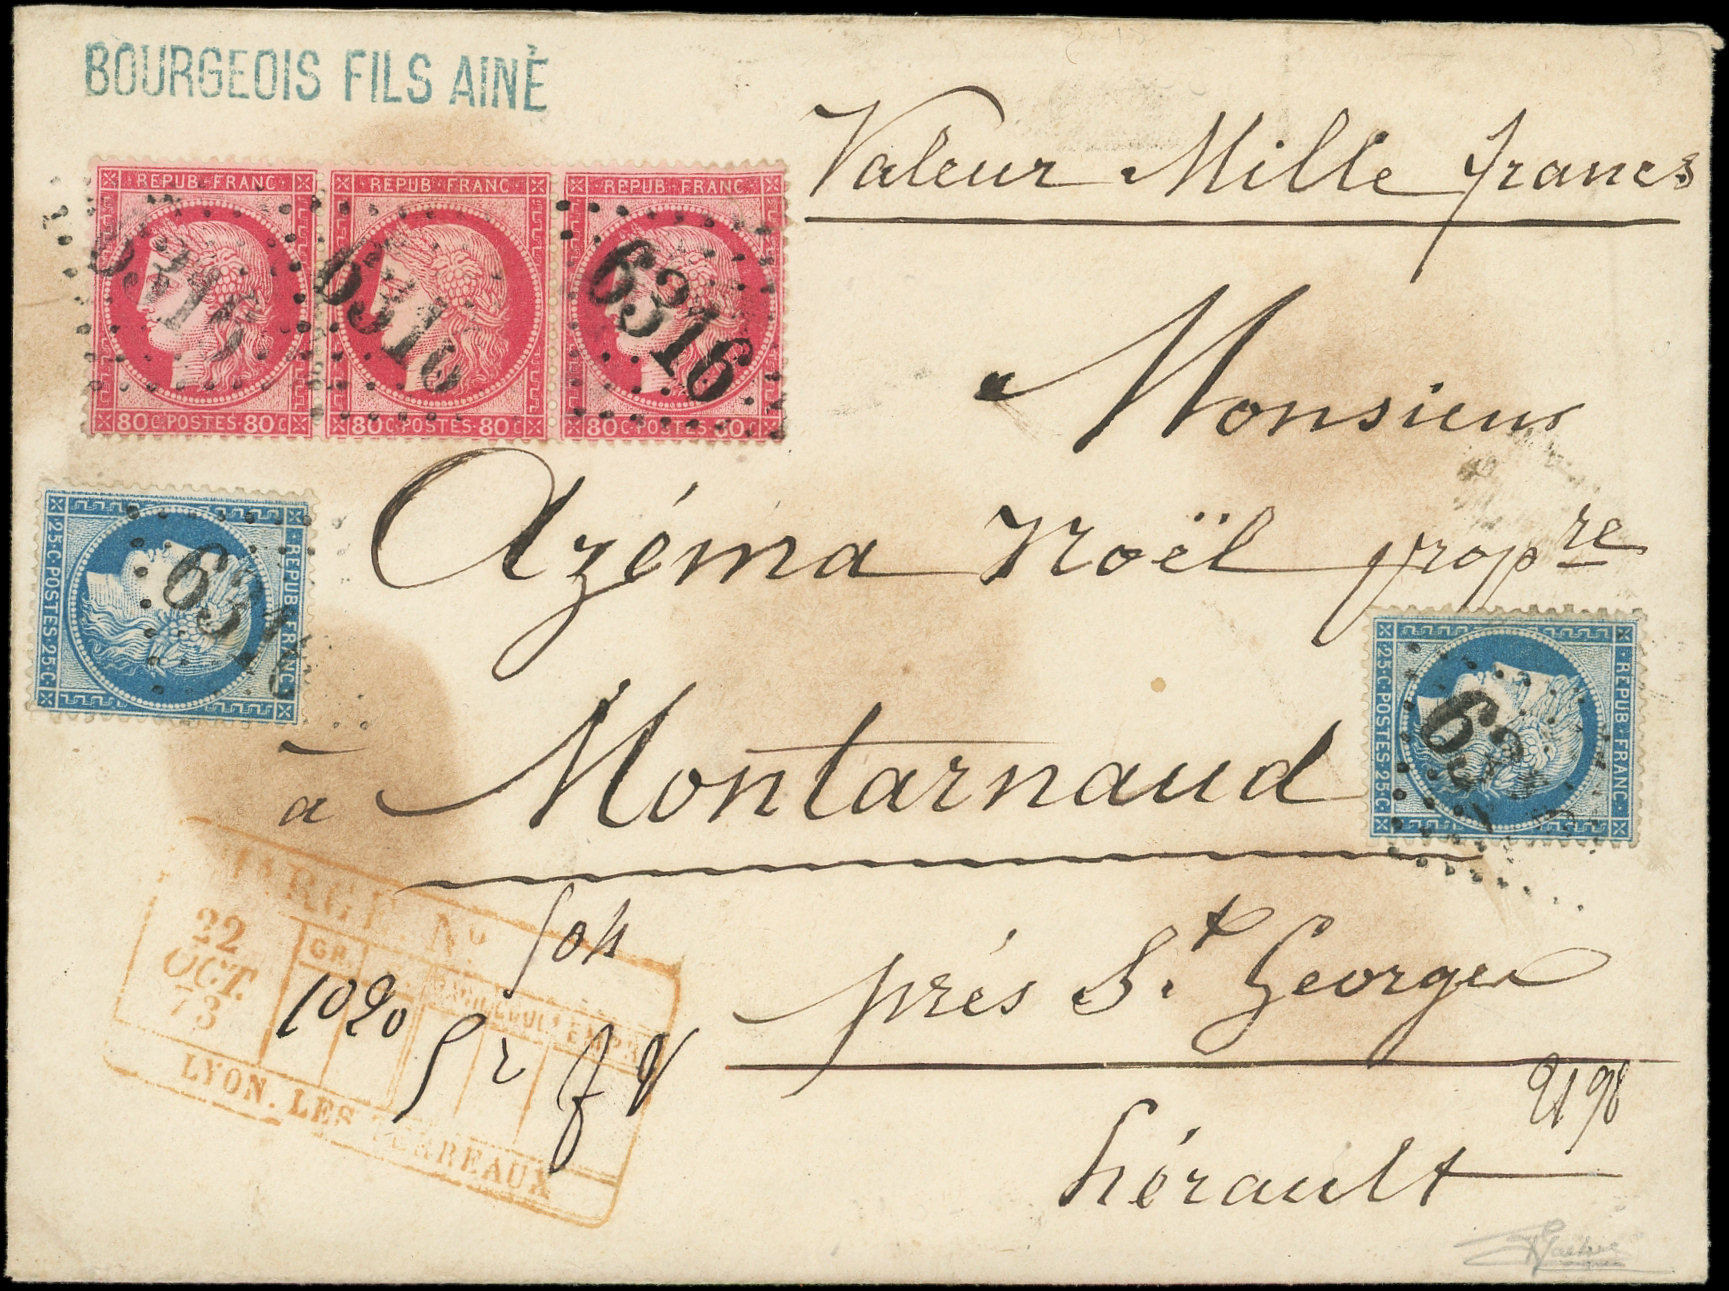 BOURGEOIS FILS AINÈ
Valeur Mille francs
REPUB·FRANC REPUB·FRANC REPUB·FRANC
6316 6316 6316
80C·POSTES·80C 80C·POSTES·80C 80C·POSTES·80C
Monsieur
Azéma Noël propre
REPUB·FRANC
6316
25·C·POSTES·25·C
REPUB·FRANC
25·C·POSTES·25·C
à Montarnaud
CHARGÉ. No 504
22
OCT.
73
GR.
1020
près St. Georges
LYON. LES TERREAUX
2198
hérault